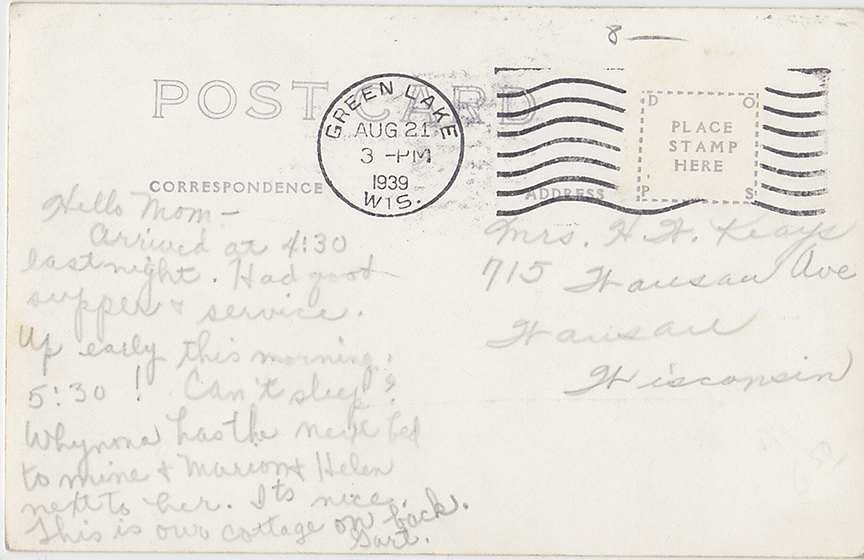 8 —
POST CARD
GREEN LAKE
AUG 21
3 -PM
1939
WIS.
D O
PLACE
STAMP
HERE
P S
CORRESPONDENCE
ADDRESS
Hello Mom -
Arrived at 4:30
last night. Had good
supper & service.
Up early this morning.
5:30 ! Can't sleep?
Whynona has the next bed
to mine & Marion & Helen
next to her. Its nice.
This is our cottage on back.
Mrs. H. Keays
715 Wausau Ave
Wausau
Wisconsin